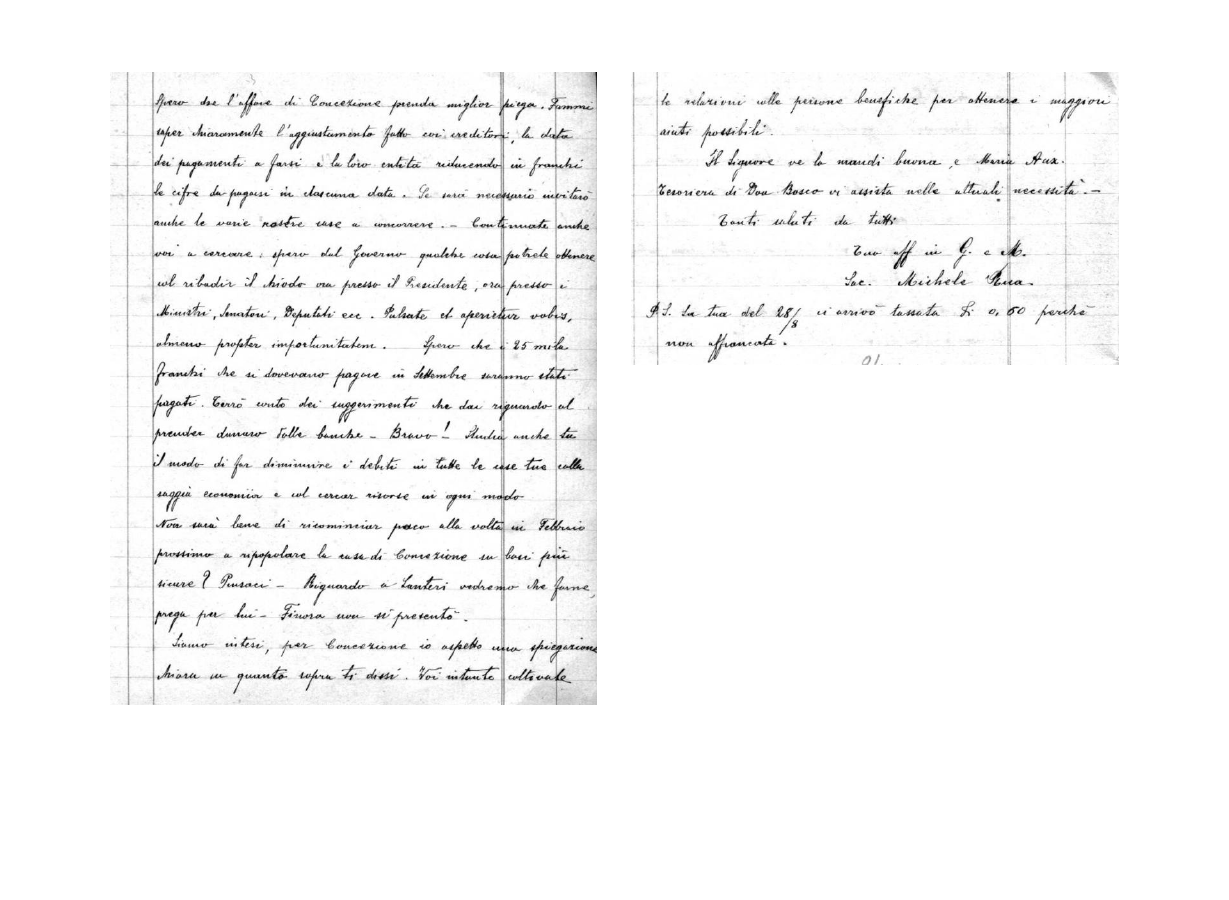 Spero che l'affare di Concezione prenda miglior piega. Fammi
saper chiaramente l'aggiustamento fatto coi creditori, la data
dei pagamenti a farsi e la loro entità riducendo in franchi
le cifre da pagarsi in ciascuna data. Se sarà necessario inviterò
anche le varie nostre case a concorrere. - Continuate anche
voi a cercare; spero dal Governo qualche cosa potrete ottenere
col ribadir il chiodo ora presso il Presidente, ora presso i
Ministri, Senatori, Deputati ecc. Pulsate et aperietur vobis,
almeno propter importunitatem. Spero che i 25 mila
franchi che si dovevano pagare in Settembre saranno stati
pagati. Terrò conto dei suggerimenti che dai riguardo al
prender danaro dalle banche - Bravo! Studia anche tu
il modo di far diminuire i debiti in tutte le case tue colla
saggia economia e col cercar risorse in ogni modo
Non sarà bene di ricominciar poco alla volta in Febbraio
prossimo a ripopolare la casa di Concezione su basi più
sicure? Pensaci - Riguardo a Lanteri vedremo che farne,
prega per lui - Finora non si presentò.
Siamo intesi, per Concezione io aspetto una spiegazione
chiara su quanto sopra ti dissi. Voi intanto coltivate
le relazioni colle persone benefiche per ottenere i maggiori
aiuti possibili.
Il Signore ve la mandi buona, e Maria Aux.
Tesoriera di Don Bosco vi assista nelle attuali necessità. -
Tanti saluti da tutti
Tuo aff in G. e M.
Sac. Michele Rua.
P.S. La tua del 28/8 ci arrivò tassata L. 0,60 perchè
non affrancata.